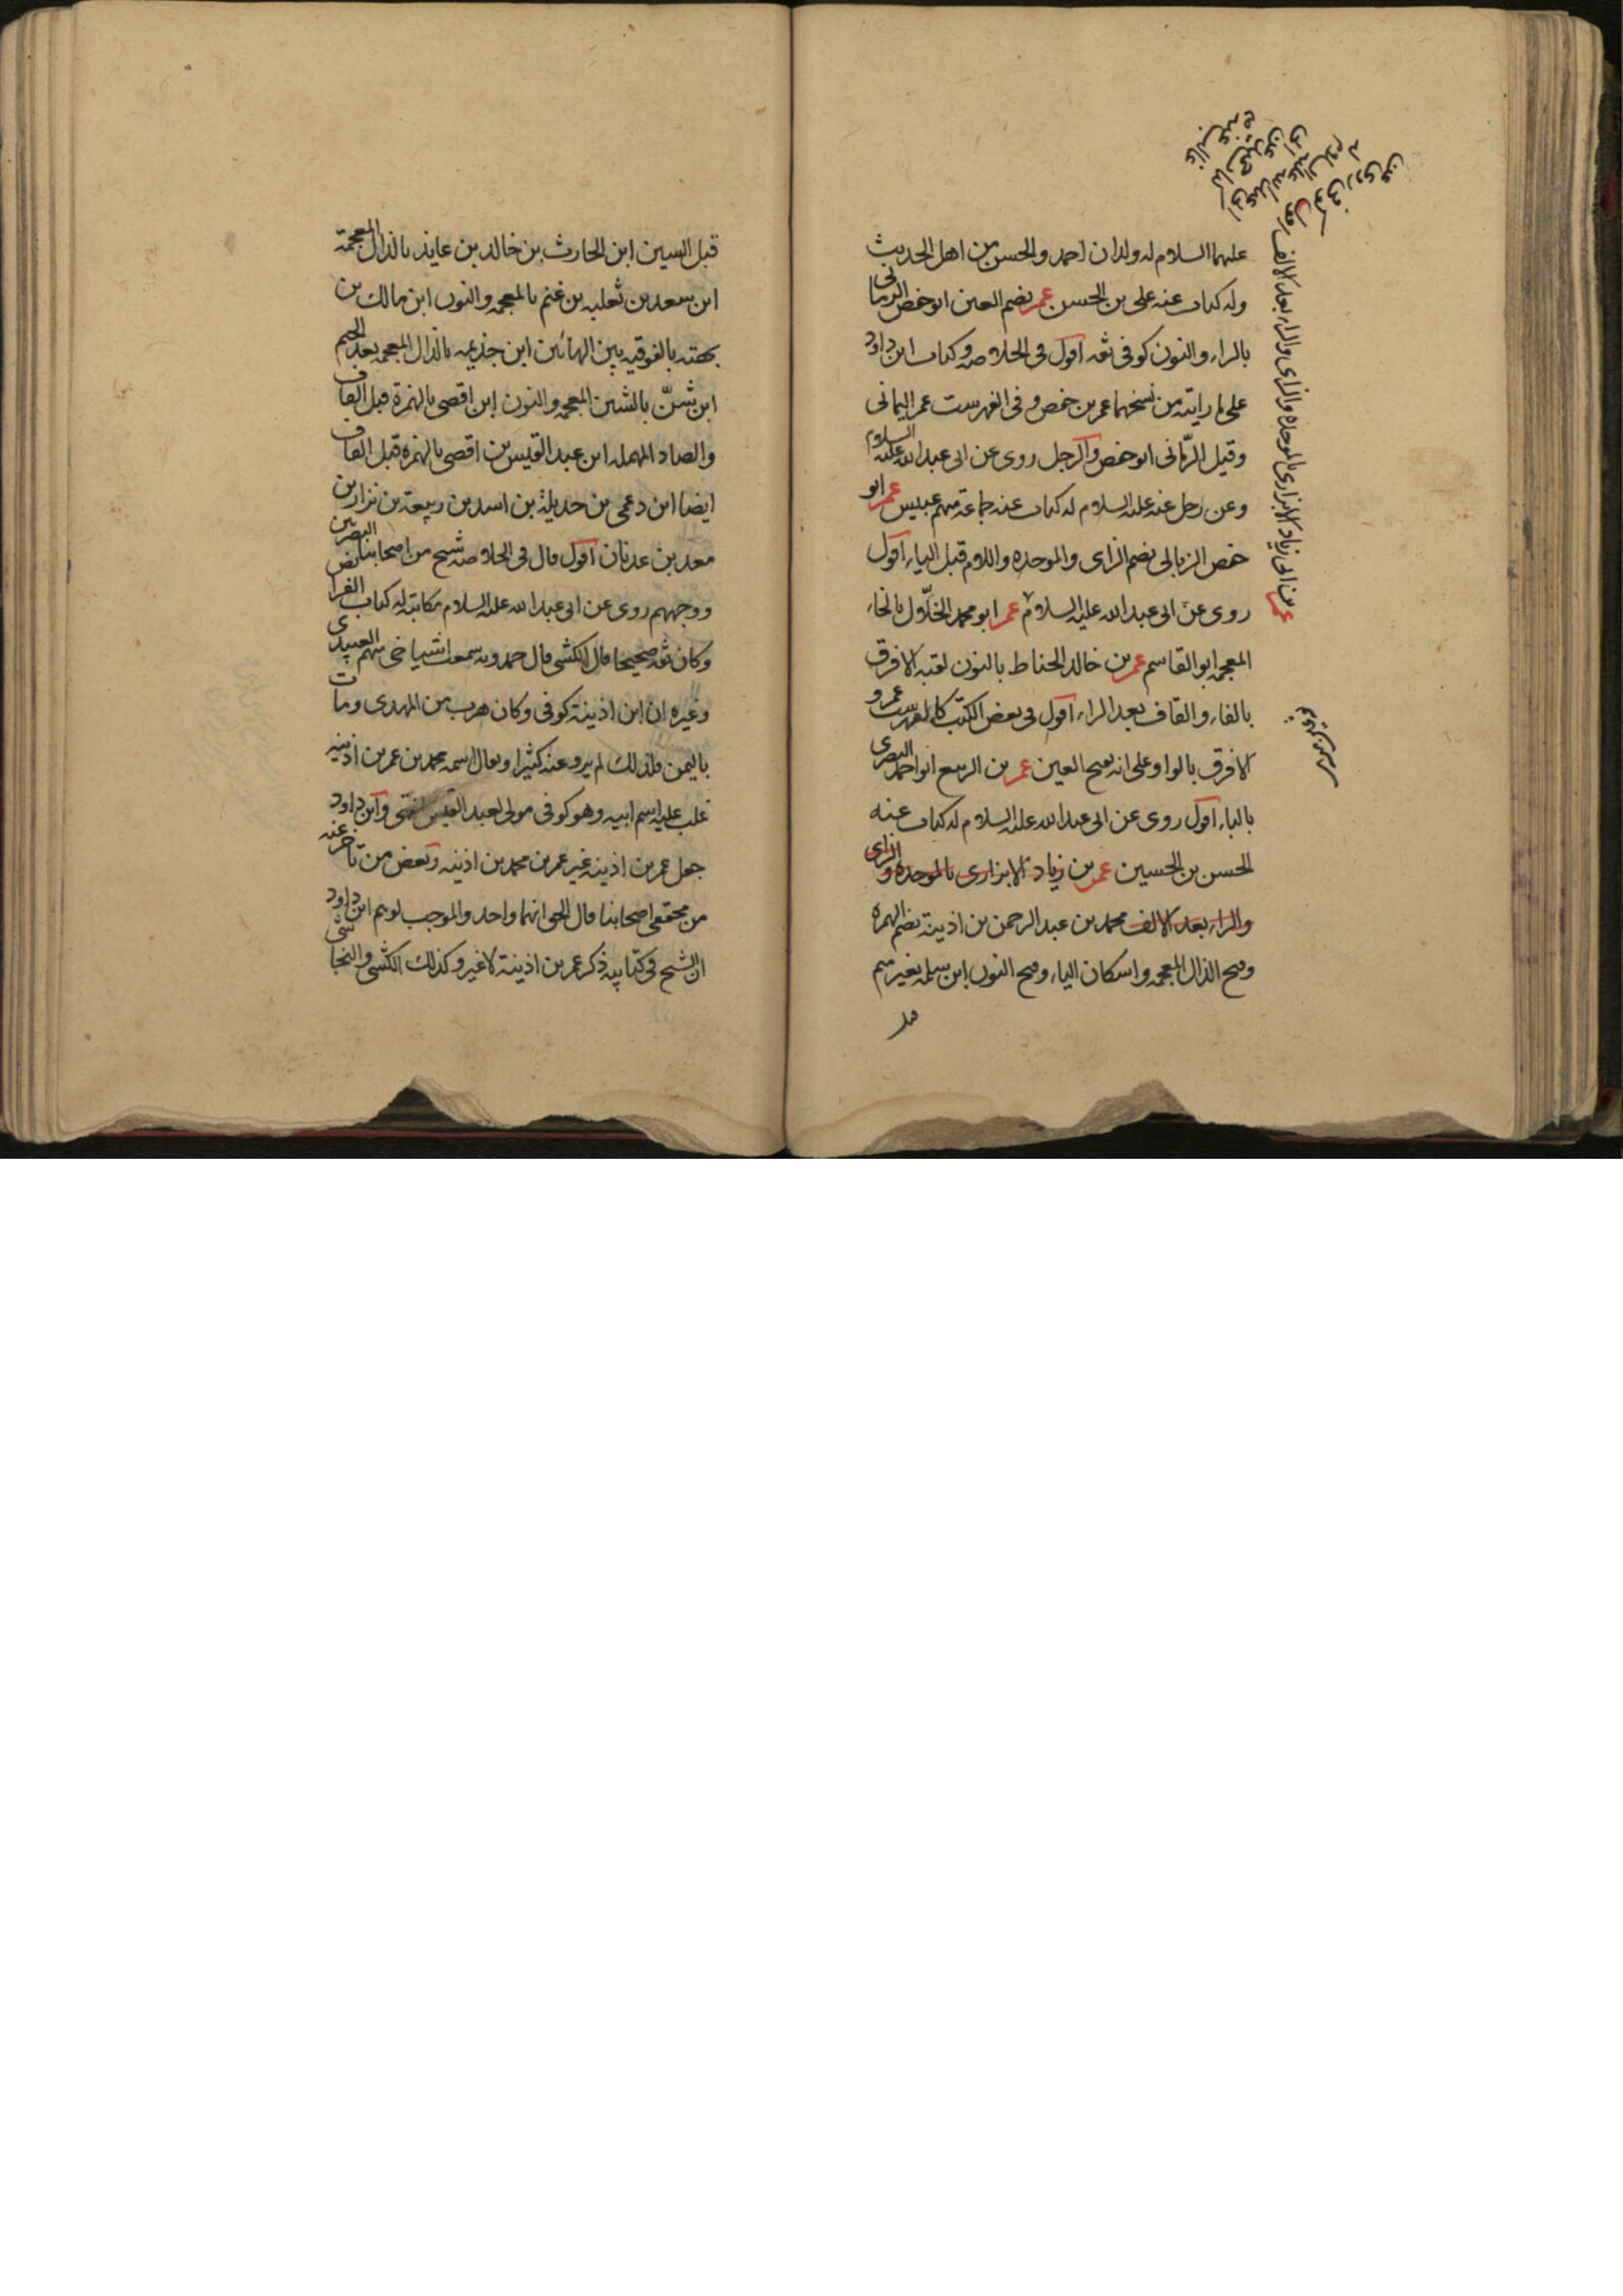 عليهما السلام له ولدان احمد والحسن من اهل الحديث
وله كتاب عنه على بن الحسن عمر بضم العين ابو حفص الرمانى
بالراء والنون كوفى ثقه اقول فى الخلاصه وكتاب ابن داود
على ما رايته من نسخهما عمر بن حفص وفى الفهرست عمر اليمانى
وقيل الرّمانى ابو حفص والرجل روى عن ابى عبدالله عليه السلام
وعن رجل عنه عليه السلام له كتاب عنه جماعة منهم عبيس عمر ابو
حفص الزبالى بضم الزاى والموحده واللام قبل الياء اقول
روى عن ابى عبدالله عليه السلام عمر ابو محمد الخلّال بالخاء
المعجمه ابو القاسم عمر بن خالد الحناط بالنون لقبه الافرق
بالفاء والقاف بعد الراء اقول فى بعض الكتب كالفهرست عمرو
الافرق بالواو على انه بفتح العين عمر بن الربيع ابو احمد البصرى
بالباء اقول روى عن ابى عبدالله عليه السلام له كتاب عنه
الحسن بن الحسين عمر بن زياد الابزارى بالموحده والزاى
والراء بعد الالف محمد بن عبد الرحمن بن اذينة بضم الهمزه
وفتح الذال المعجمه واسكان الياء وفتح النون ابن سلمه بغير ميم
قبل
عمر بن ابى زياد الابزارى بالموحده والزاى والراء بعد الالف
قبل السين ابن الحارث بن خالد بن عايذ بالذال المعجمة
ابن سعد بن ثعلبه بن غنم بالمعجمه والنون ابن مالك بن
بهثه بالفوقيه بين الهائين ابن جذيمه بالذال المعجمه بعد الجيم
ابن شنّ بالشين المعجمه والنون ابن اقصى بالهمزة قبل القاف
والصاد المهمله ابن عبد القيس بن اقصى بالهمزه قبل القاف
ايضا ابن دعمى بن جديلة بن اسد بن ربيعة بن نزار بن
معد بن عدنان اقول قال فى الخلاصه شيخ من اصحابنا البصريين
ووجههم روى عن ابى عبدالله عليه السلام مكاتبة له كتاب الفرائض
وكان ثقه صحيحا قال الكشى قال حمدويه سمعت اشياخى منهم العبيدى
وغيره ان ابن اذينة كوفى وكان هرب من المهدى ومات
باليمن فلذلك لم يرو عنه كثيرا ويقال اسمه محمد بن عمر بن اذينه
غلب عليه اسم ابيه وهو كوفى مولى لعبد القيس انتهى وابن داود
جعل عمر بن اذينه غير عمر بن محمد بن اذينه وبعض من تاخر عنه
من محققى اصحابنا قال الحق انهما واحد والموجب لوهم ابن داود
ان الشيخ فى كتابيه ذكر عمر بن اذينة لا غير وكذلك الكشى والنجاشى